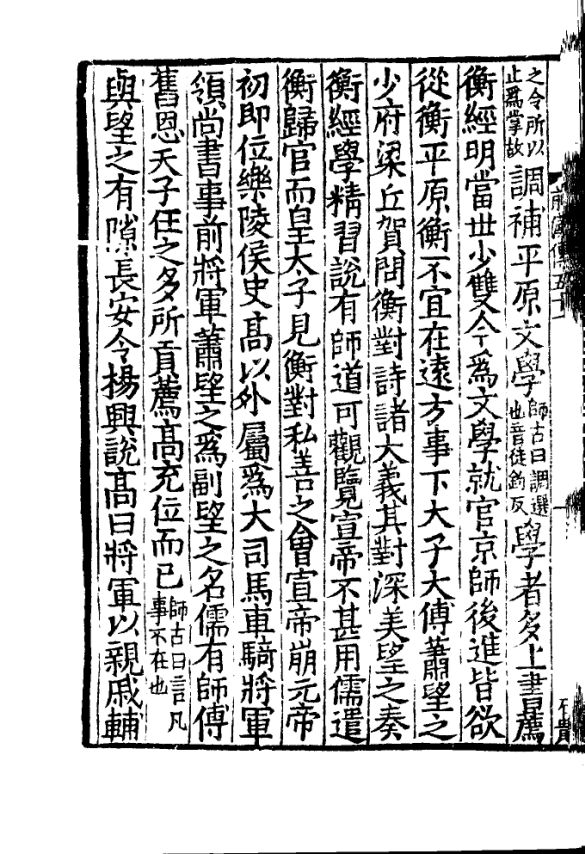 之令所以止爲掌故調補平原文學師古曰調選也音徒釣反學者多上書薦
衡經明當世少雙今爲文學就官京師後進皆欲
從衡平原衡不宜在遠方事下大子大傅蕭望之
少府梁丘賀問衡對詩諸大義其對深美望之奏
衡經學精習說有師道可觀覽宣帝不甚用儒遣
衡歸官而皇太子見衡對私善之會宣帝崩元帝
初即位樂陵侯史高以外屬爲大司馬車騎將軍
領尚書事前將軍蕭望之爲副望之名儒有師傅
舊恩天子任之多所貢薦高充位而已師古曰言凡事不在也
與望之有隙長安令楊興說高曰將軍以親戚輔